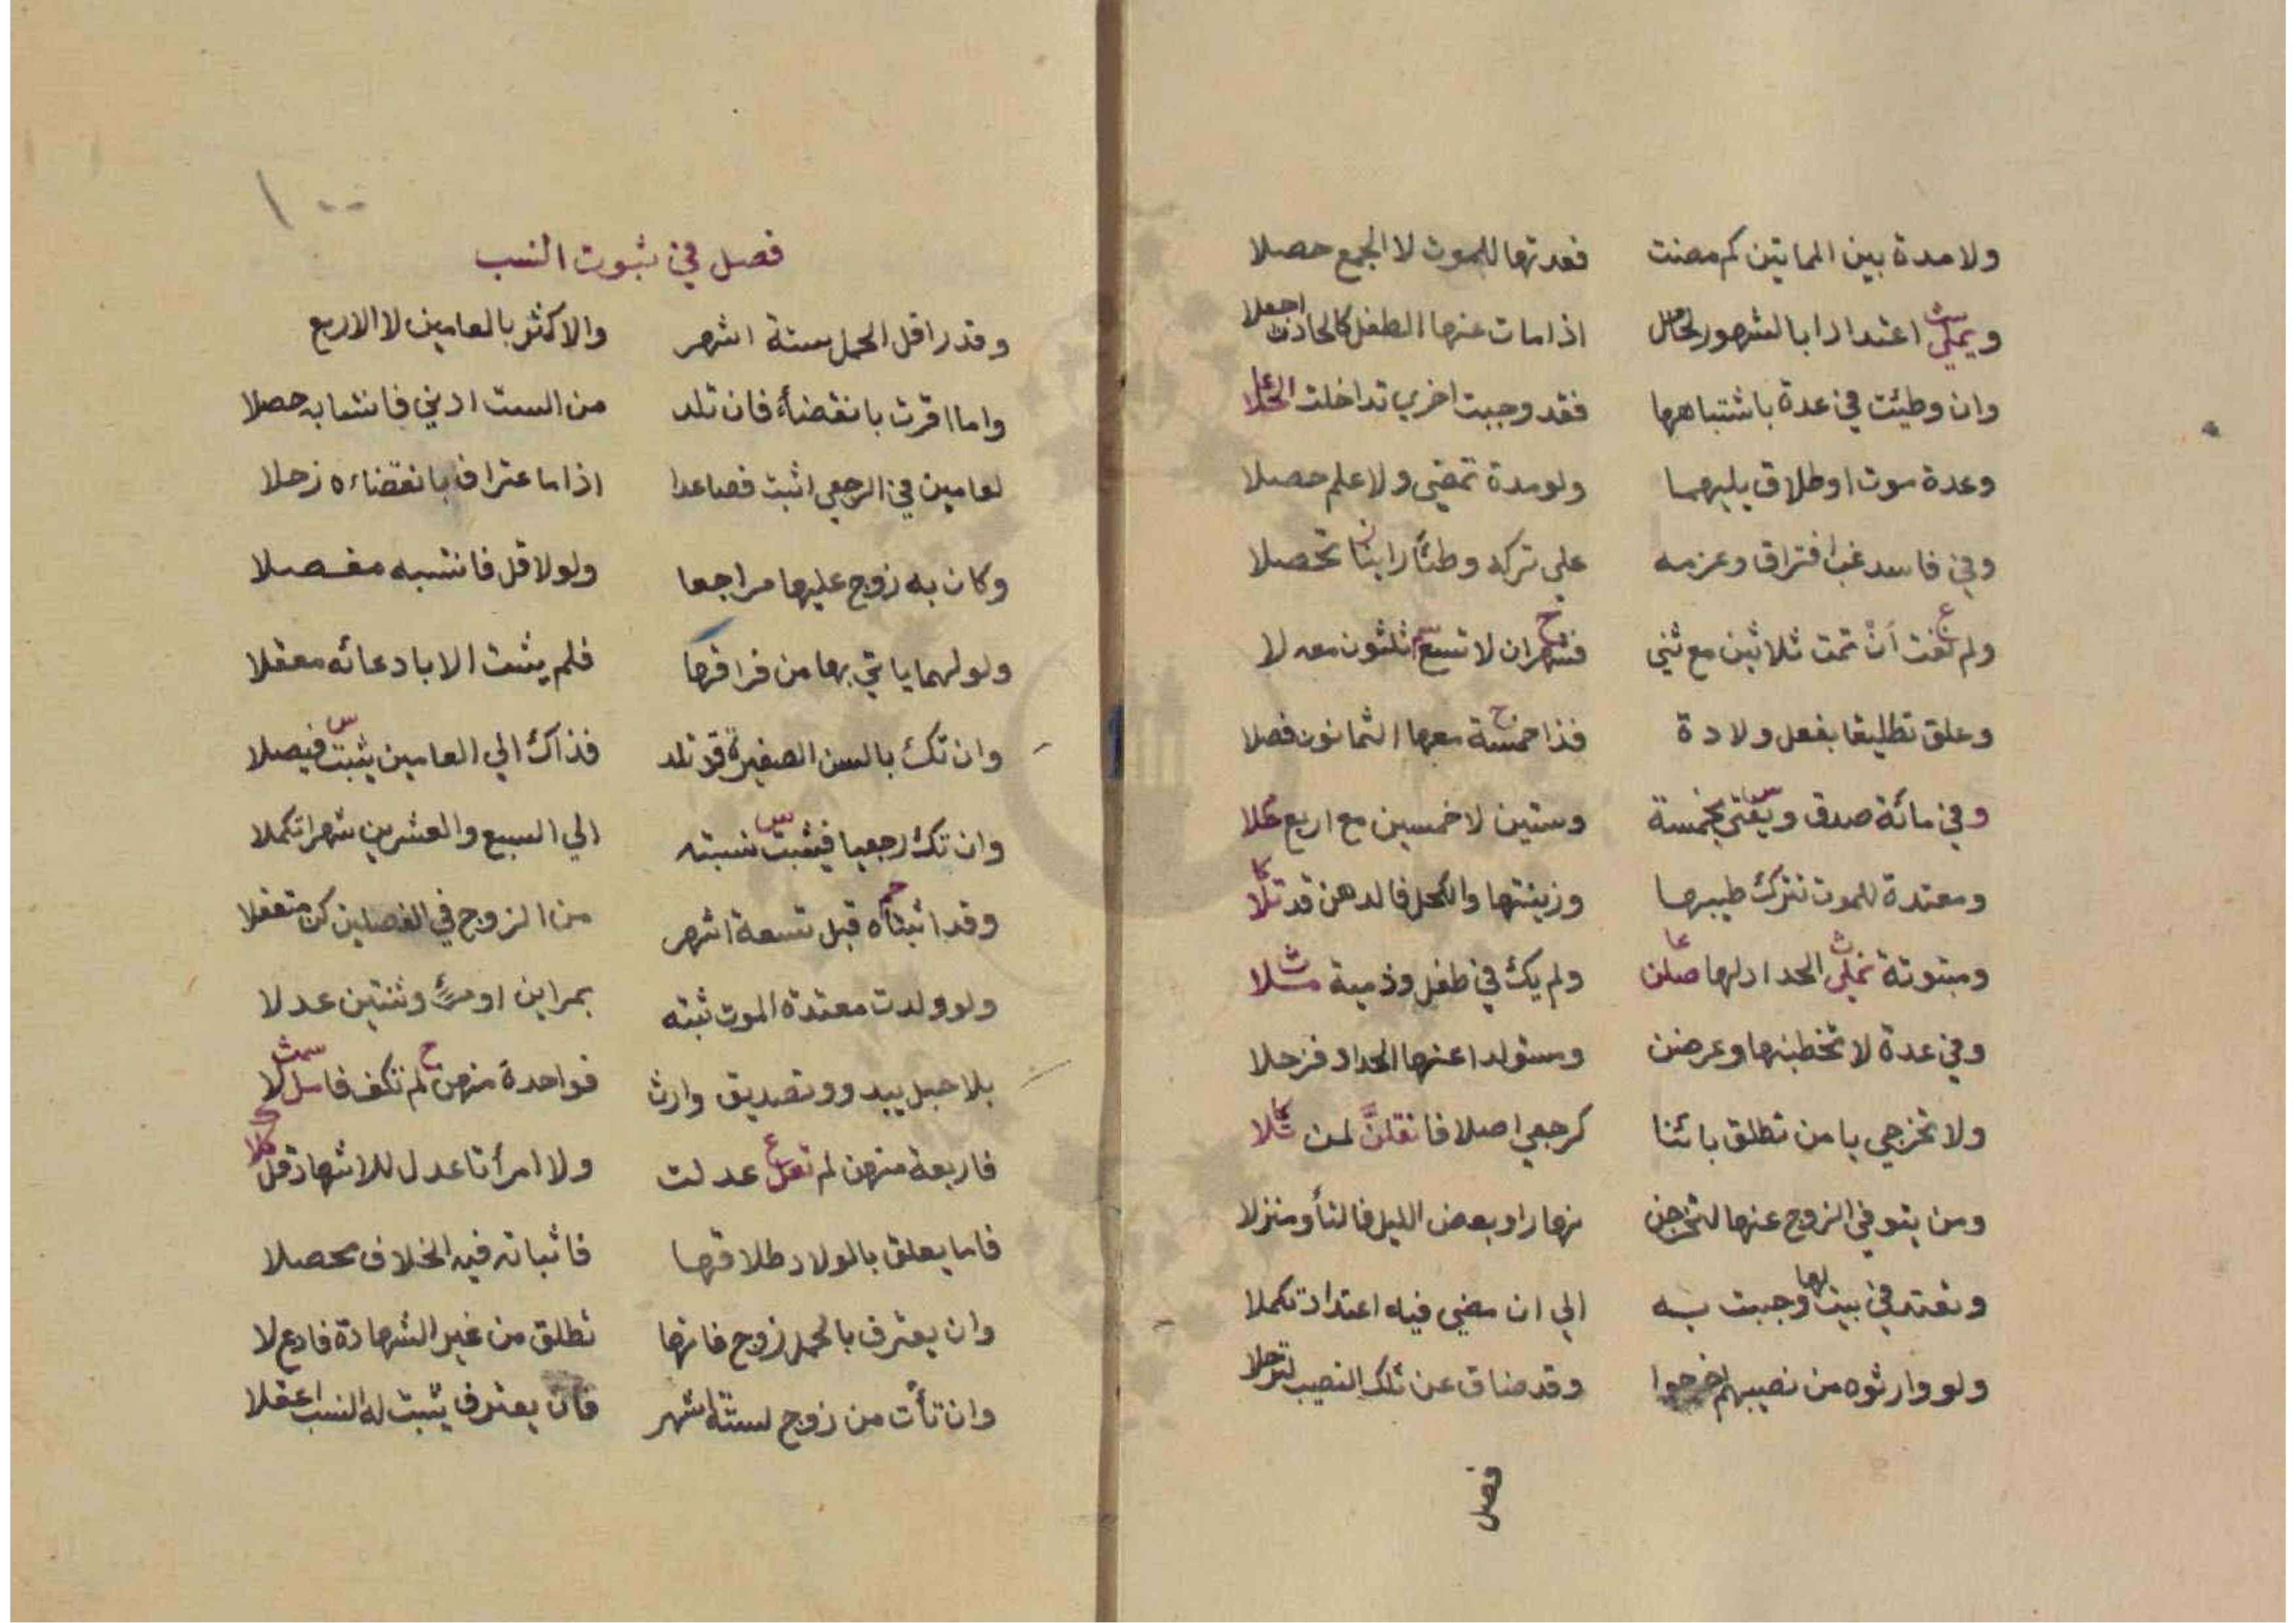 ولا مدة بين المماتين كم مضت فعدتها للموت لا الجمع حصلا
ويملي اعتدادا بالشهور لحامل اذا مات عنها الطفل كالحادث اجعلا
وان وطيئت في عدة باشتباهها فقد وجبت اخري تداخلت
وعدة موت او طلاق يليهما ولو مدة تمضي ولا علم حصلا
وفي فاسد غب افتراق وعزمه علي تركه وطئاً راينا تحصلا
ولم تفت أنْ تمت ثلاثين مع ثني فشهران لا تسع ثلثون معه لا
وعلق تطليقا بفعل ولادة فذا خمسة معها الثمانون فصلا
وفي مائة صدق ويفتي بخمسة وستين لا خمسين مع اربع علا
ومعتدة للموت تترك طيبها وزينتها والكحل فالدهن قد تلا
ومبتوتة نملي الحداد لها صلن ولم يك في طفل وذمية مثلا
وفي عدة لا تخطبنها وعرضن ومستولدا عنها الحداد فزحلا
ولا تخرجي يا من تطلق بائنا كرجعي اصلا فانقلنّ لمن ثلا
ومن يتوفي الزوج عنها لتخرجن نهارا وبعض الليل فالتأو منزلا
وتعتد في بيت لها وجبت به الي ان مضي فيه اعتداد تكملا
ولو وارثوه من نصيبهم اخرجوا وقد ضاق عن تلك النصيب لترحلا
فصل
١٠٠
فصل في ثبوت النسب
وقدر اقل الحمل ستة اشهر والاكثر بالعامين لا الاربع
واما اقرت بانقضاء فان تلد من الست ادني فانتسابه حصلا
لعامين في الرجعي اثبت فصاعدا اذا ما اعترافه بانقضاءه زحلا
وكان به زوج عليها مراجعا ولو لاقل فانتسبه مفصلا
ولو لهما ياتي بها من فراقها فلم يثبت الا بادعائه معقلا
وان تك بالسن الصغيرة قد تلد فذاك الي العامين يثبت فيصلا
وان تك رجعيا فيثبت نسبته الي السبع والعشرين شهرا تكملا
وقد اثبتاه قبل تسعة اشهر من الزوج في الفصلين كن متعقلا
ولو ولدت معتدة الموت ثبته بمراين او مرءٍ وثنتين عدلا
بلا حبل يبدو وتصديق وارث فواحدة منهن لم تكف فاسل لا
فاربعة منهن لم تعل عدلت ولا امرأتا عدل للاشهاد قل
فاما يعلق بالولاد طلاقها فاثباته فيه الخلاف محصلا
وان يعترف بالحمل زوج فانها تطلق من غير الشهادة فادع لا
وان تأت من زوج لستة اشهر فان يعترف يثبت له النسب اعقلا